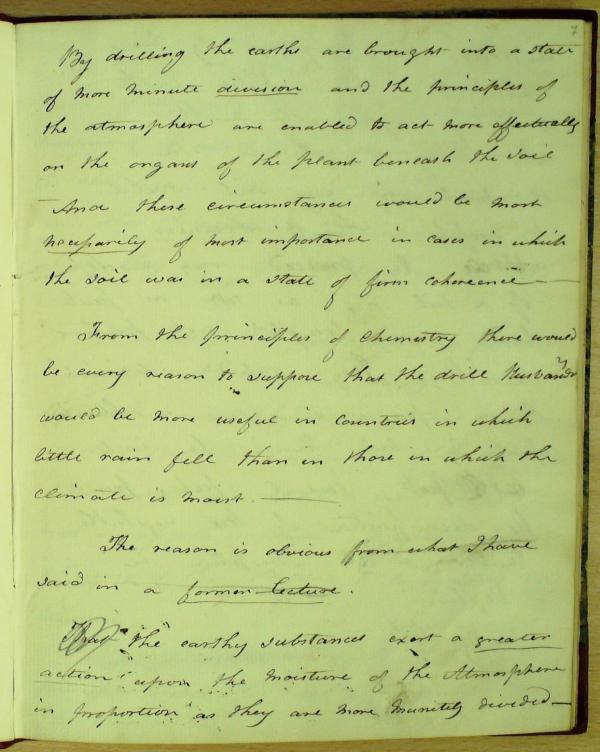 7
By drilling the earths are brought into a state
of more minute division and the principles of
the atmosphere are enabled to act more effectually
on the organs of the plant beneath the soil
And these circumstances would be most
necessarily of most importance in cases in which
the soil was in a state of firm coherence —
From the principles of Chemistry there would
be every reason to suppose that the drill Husbandry
would be more useful in Countries in which
little rain fell than in those in which the
climate is moist. —
The reason is obvious from what I have
said in a former lecture.
That "the" earthy substances exert a greater
action upon the moisture of the Atmosphere
in proportion as they are more minutely divided —